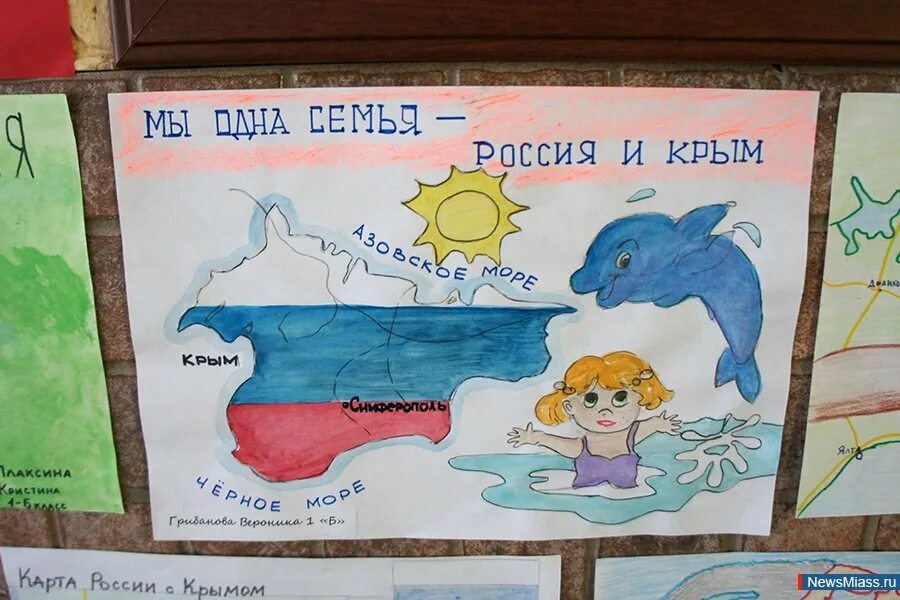 МЫ ОДНА СЕМЬЯ —
РОССИЯ И КРЫМ
АЗОВСКОЕ МОРЕ
КРЫМ
Симферополь
ЧЁРНОЕ МОРЕ
Грибанова Вероника 1 «Б»
Я
Плаксина
Кристина
1-Б класс
Ялта
Карта России с Крымом
NewsMiass.ru